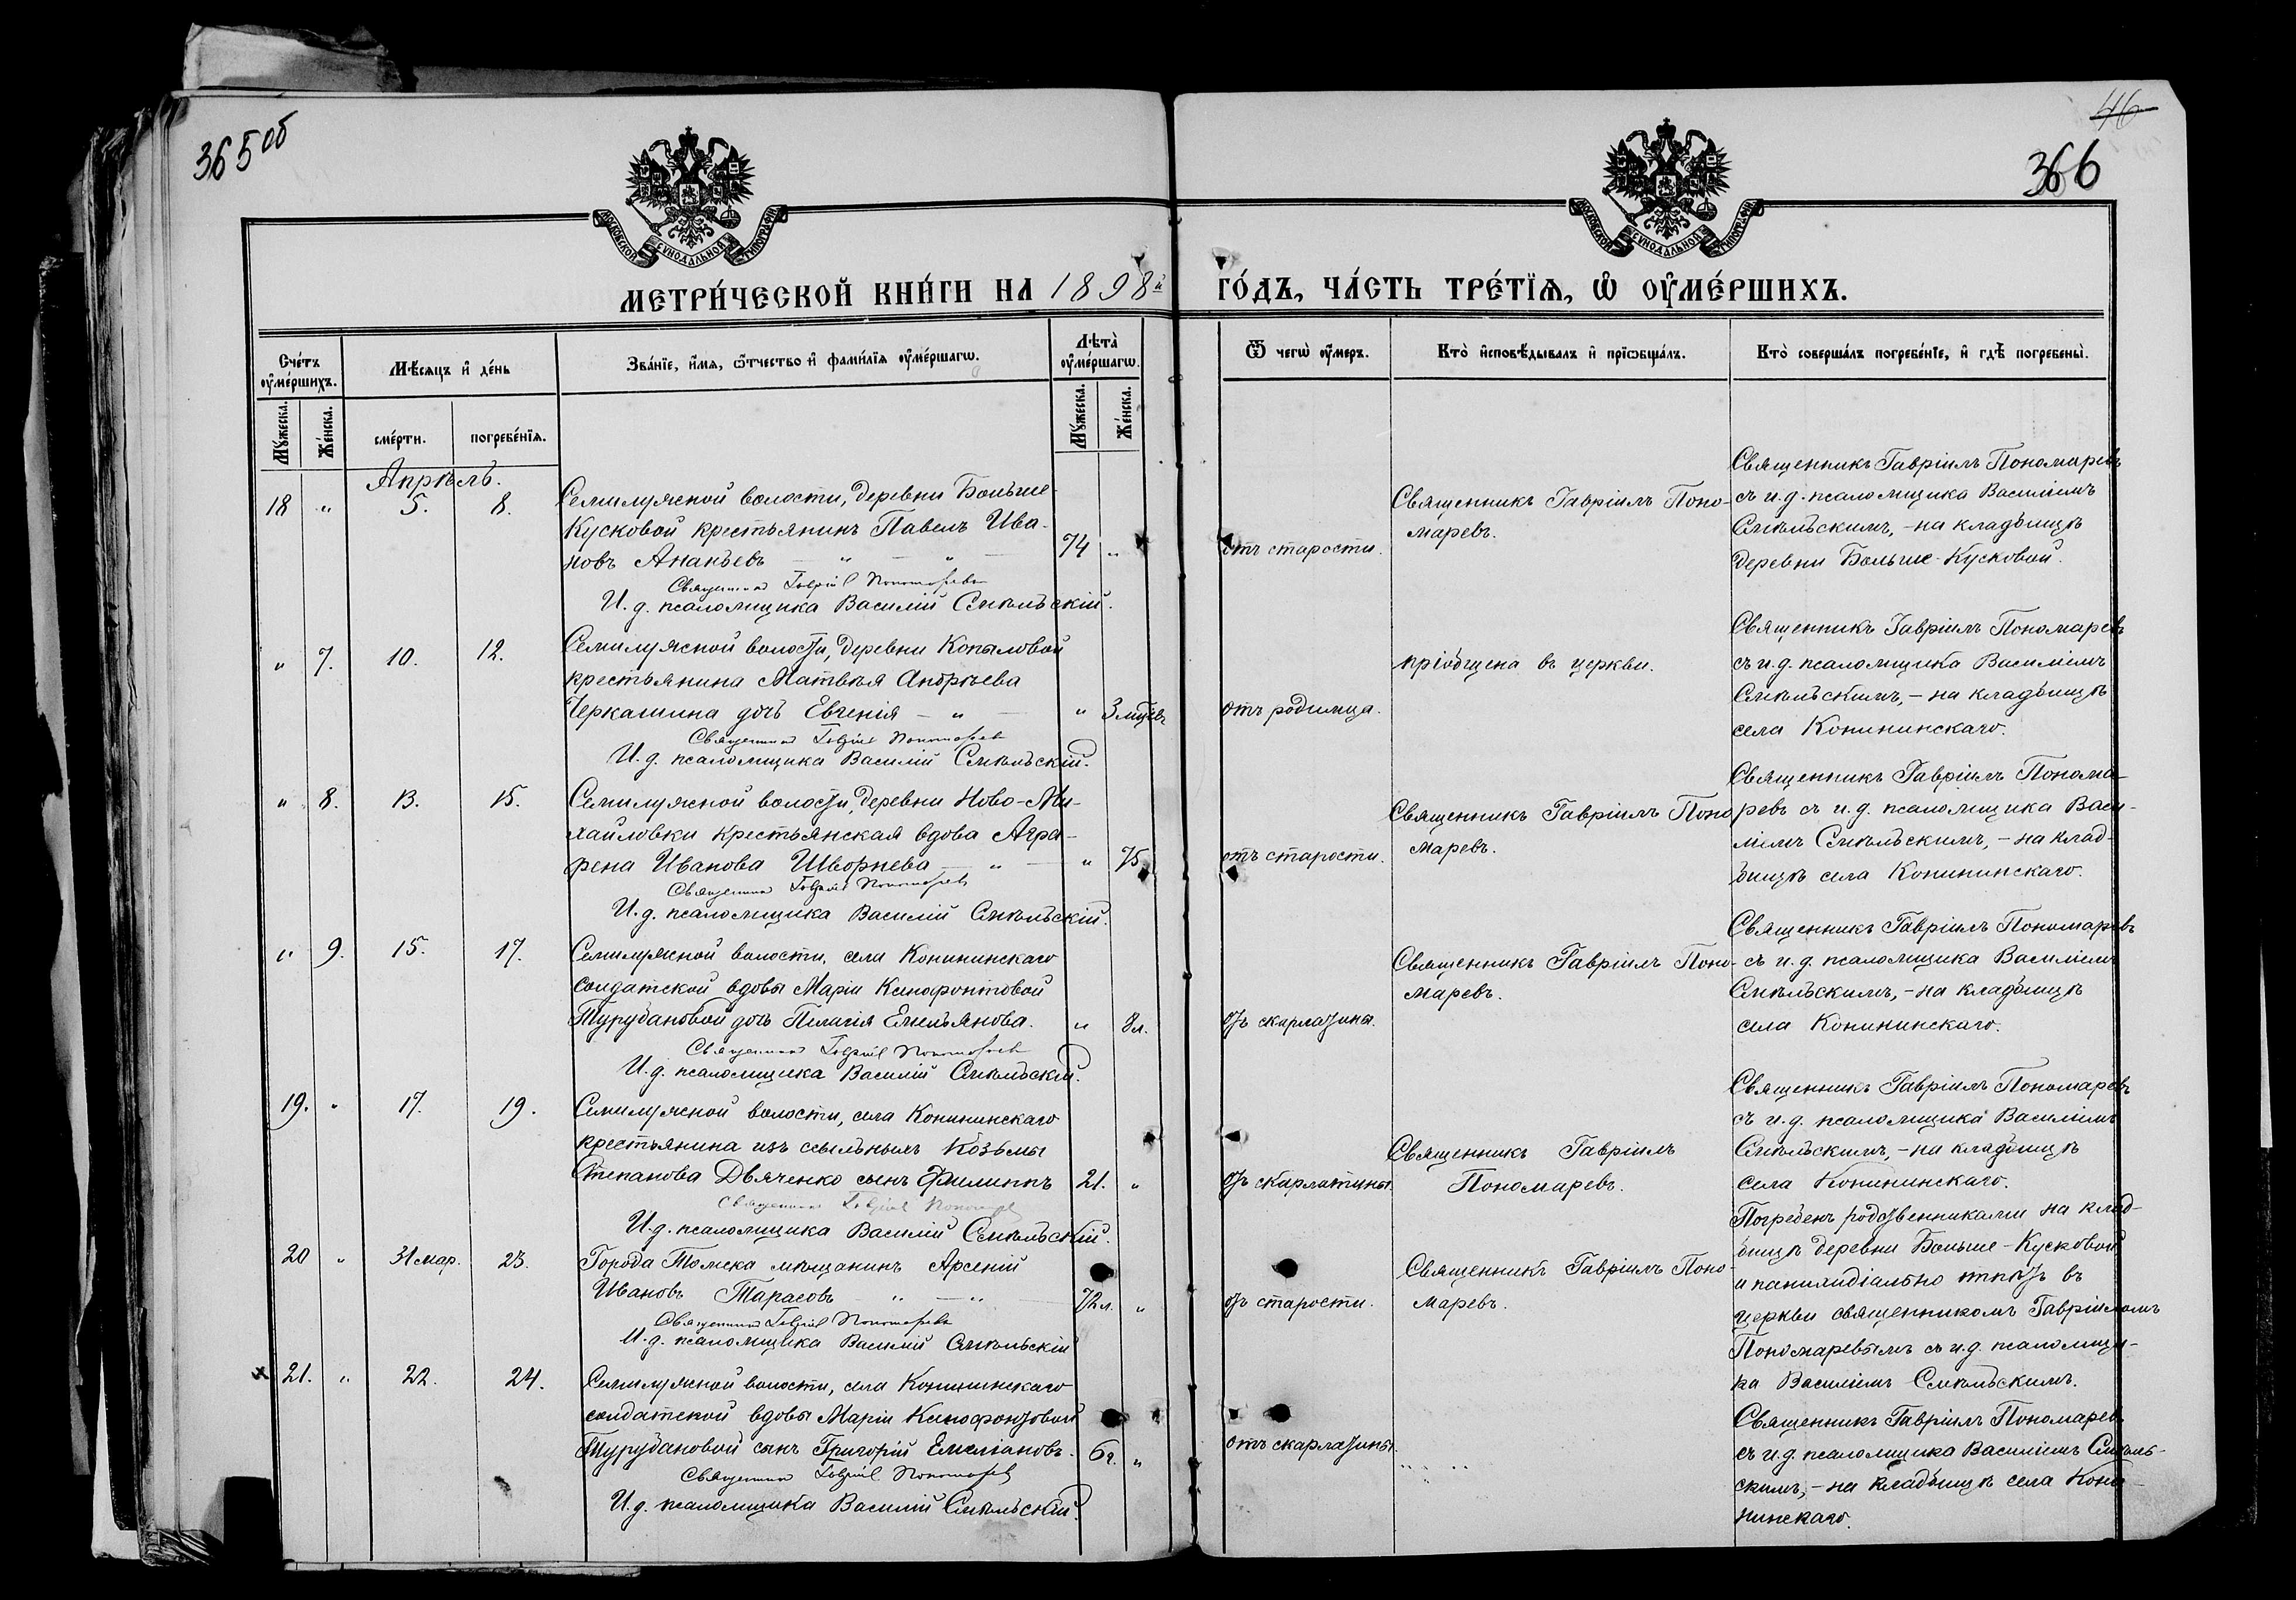 365 об
46
366
МОСКОВСКОЙ СУНОДАЛЬНОЙ ТИПОГРАФІИ
МОСКОВСКОЙ СУНОДАЛЬНОЙ ТИПОГРАФІИ
МЕТРИ́ЧЕСКОЙ КНИ́ГИ НА 1898й ГО́ДЪ, ЧА́СТЬ ТРЕ́ТЇѦ, Ѡ ОУ҆МЕ́РШИХЪ.
Сче́тъ оу҆ме́ршихъ.
Му́жеска.
Же́нска.
Мѣ́сяцъ и҆ де́нь
сме́рти.
погребе́нїѧ.
Зва́нїе, и҆́мѧ, ѻ҆́тчество и҆ фами́лїѧ оу҆ме́ршагѡ.
Лѣта̀ оу҆ме́ршагѡ.
Му́жеска.
Же́нска.
Ѿ чегѡ̀ оу҆́меръ.
Кто̀ и҆сповѣ́дывалъ и҆ прїѡбща́лъ.
Кто̀ соверша́лъ погребе́нїе, и҆ гдѣ̀ погребены̀.
Апрѣль.
18 " 5. 8.
Семилужной волости, деревни Больше-
Кусковой крестьянинъ Павелъ Ива-
новъ Ананьевъ — " — " —
74 "
Священник Гавріил Пономаревъ
И. д. псаломщика Василій Смѣльскій.
отъ старости.
Священникъ Гавріилъ Поно-
маревъ.
Священникъ Гавріилъ Пономаревъ
съ и. д. псаломщика Василіемъ
Смѣльскимъ, - на кладбищѣ
деревни Больше-Кусковой.
" 7. 10. 12.
Семилужной волости, деревни Копыловой
крестьянина Матвѣя Андрѣева
Черкашина дочь Евгенія — " —
" 3 мѣсяц.
Священник Гавріил Пономарев
И. д. псаломщика Василій Смѣльскій.
отъ родимца.
пріобщена въ церкви.
Священникъ Гавріилъ Пономаревъ
съ и. д. псаломщика Василіемъ
Смѣльскимъ, - на кладбищѣ
села Конининскаго.
" 8. 13. 15.
Семилужной волости, деревни Ново-Ми-
хайловки крестьянская вдова Агра-
фена Иванова Шворнева — " —
" 75
Священник Гавріил Пономарев
И. д. псаломщика Василій Смѣльскій.
отъ старости.
Священникъ Гавріилъ Поно
маревъ.
Священникъ Гавріилъ Понома-
ревъ съ и. д. псаломщика Васи-
ліемъ Смѣльскимъ, - на клад-
бищѣ села Конининскаго.
" 9. 15. 17.
Семилужной волости, села Конининскаго
солдатской вдовы Маріи Ксенофонтовой
Турубановой дочь Пелагія Емельянова.
" 8 л.
Священник Гавріил Пономарев
И. д. псаломщика Василій Смѣльскій.
отъ скарлатины.
Священникъ Гавріилъ Поно-
маревъ.
Священникъ Гавріилъ Пономаревъ
съ и. д. псаломщика Василіемъ
Смѣльскимъ, - на кладбищѣ
села Конининскаго.
19. " 17. 19.
Семилужной волости, села Конининскаго
крестьянина изъ ссыльныхъ Козьмы
Степанова Двяченко сынъ Филиппъ
21. "
Священник Гавріил Пономарев
И. д. псаломщика Василій Смѣльскій.
отъ скарлатины.
Священникъ Гавріилъ
Пономаревъ.
Священникъ Гавріилъ Пономаревъ
съ и. д. псаломщика Василіемъ
Смѣльскимъ, - на кладбищѣ
села Конининскаго.
20 " 31 мар. 23.
Города Томска мѣщанинъ Арсеній
Ивановъ Тарасовъ — " — "
72 л. "
Священник Гавріил Пономарев
И. д. псаломщика Василій Смѣльскій
отъ старости.
Священникъ Гавріилъ Поно-
маревъ.
Погребенъ родственниками на клад-
бищѣ деревни Больше-Кусковой
и панихидіально отпѣтъ въ
церкви священникомъ Гавріиломъ
Пономаревымъ съ и. д. псаломщи-
ка Василіемъ Смѣльскимъ.
х 21. " 22. 24.
Семилужной волости, села Конининскаго
солдатской вдовы Маріи Ксенофонтовой
Турубановой сынъ Григорій Емеліановъ.
6 г. "
Священник Гавріил Пономарев
И. д. псаломщика Василій Смѣльскій.
отъ скарлатины.
" " "
Священникъ Гавріилъ Пономаревъ
съ и. д. псаломщика Василіемъ Смѣль-
скимъ, - на кладбищѣ села Кони-
нинскаго.